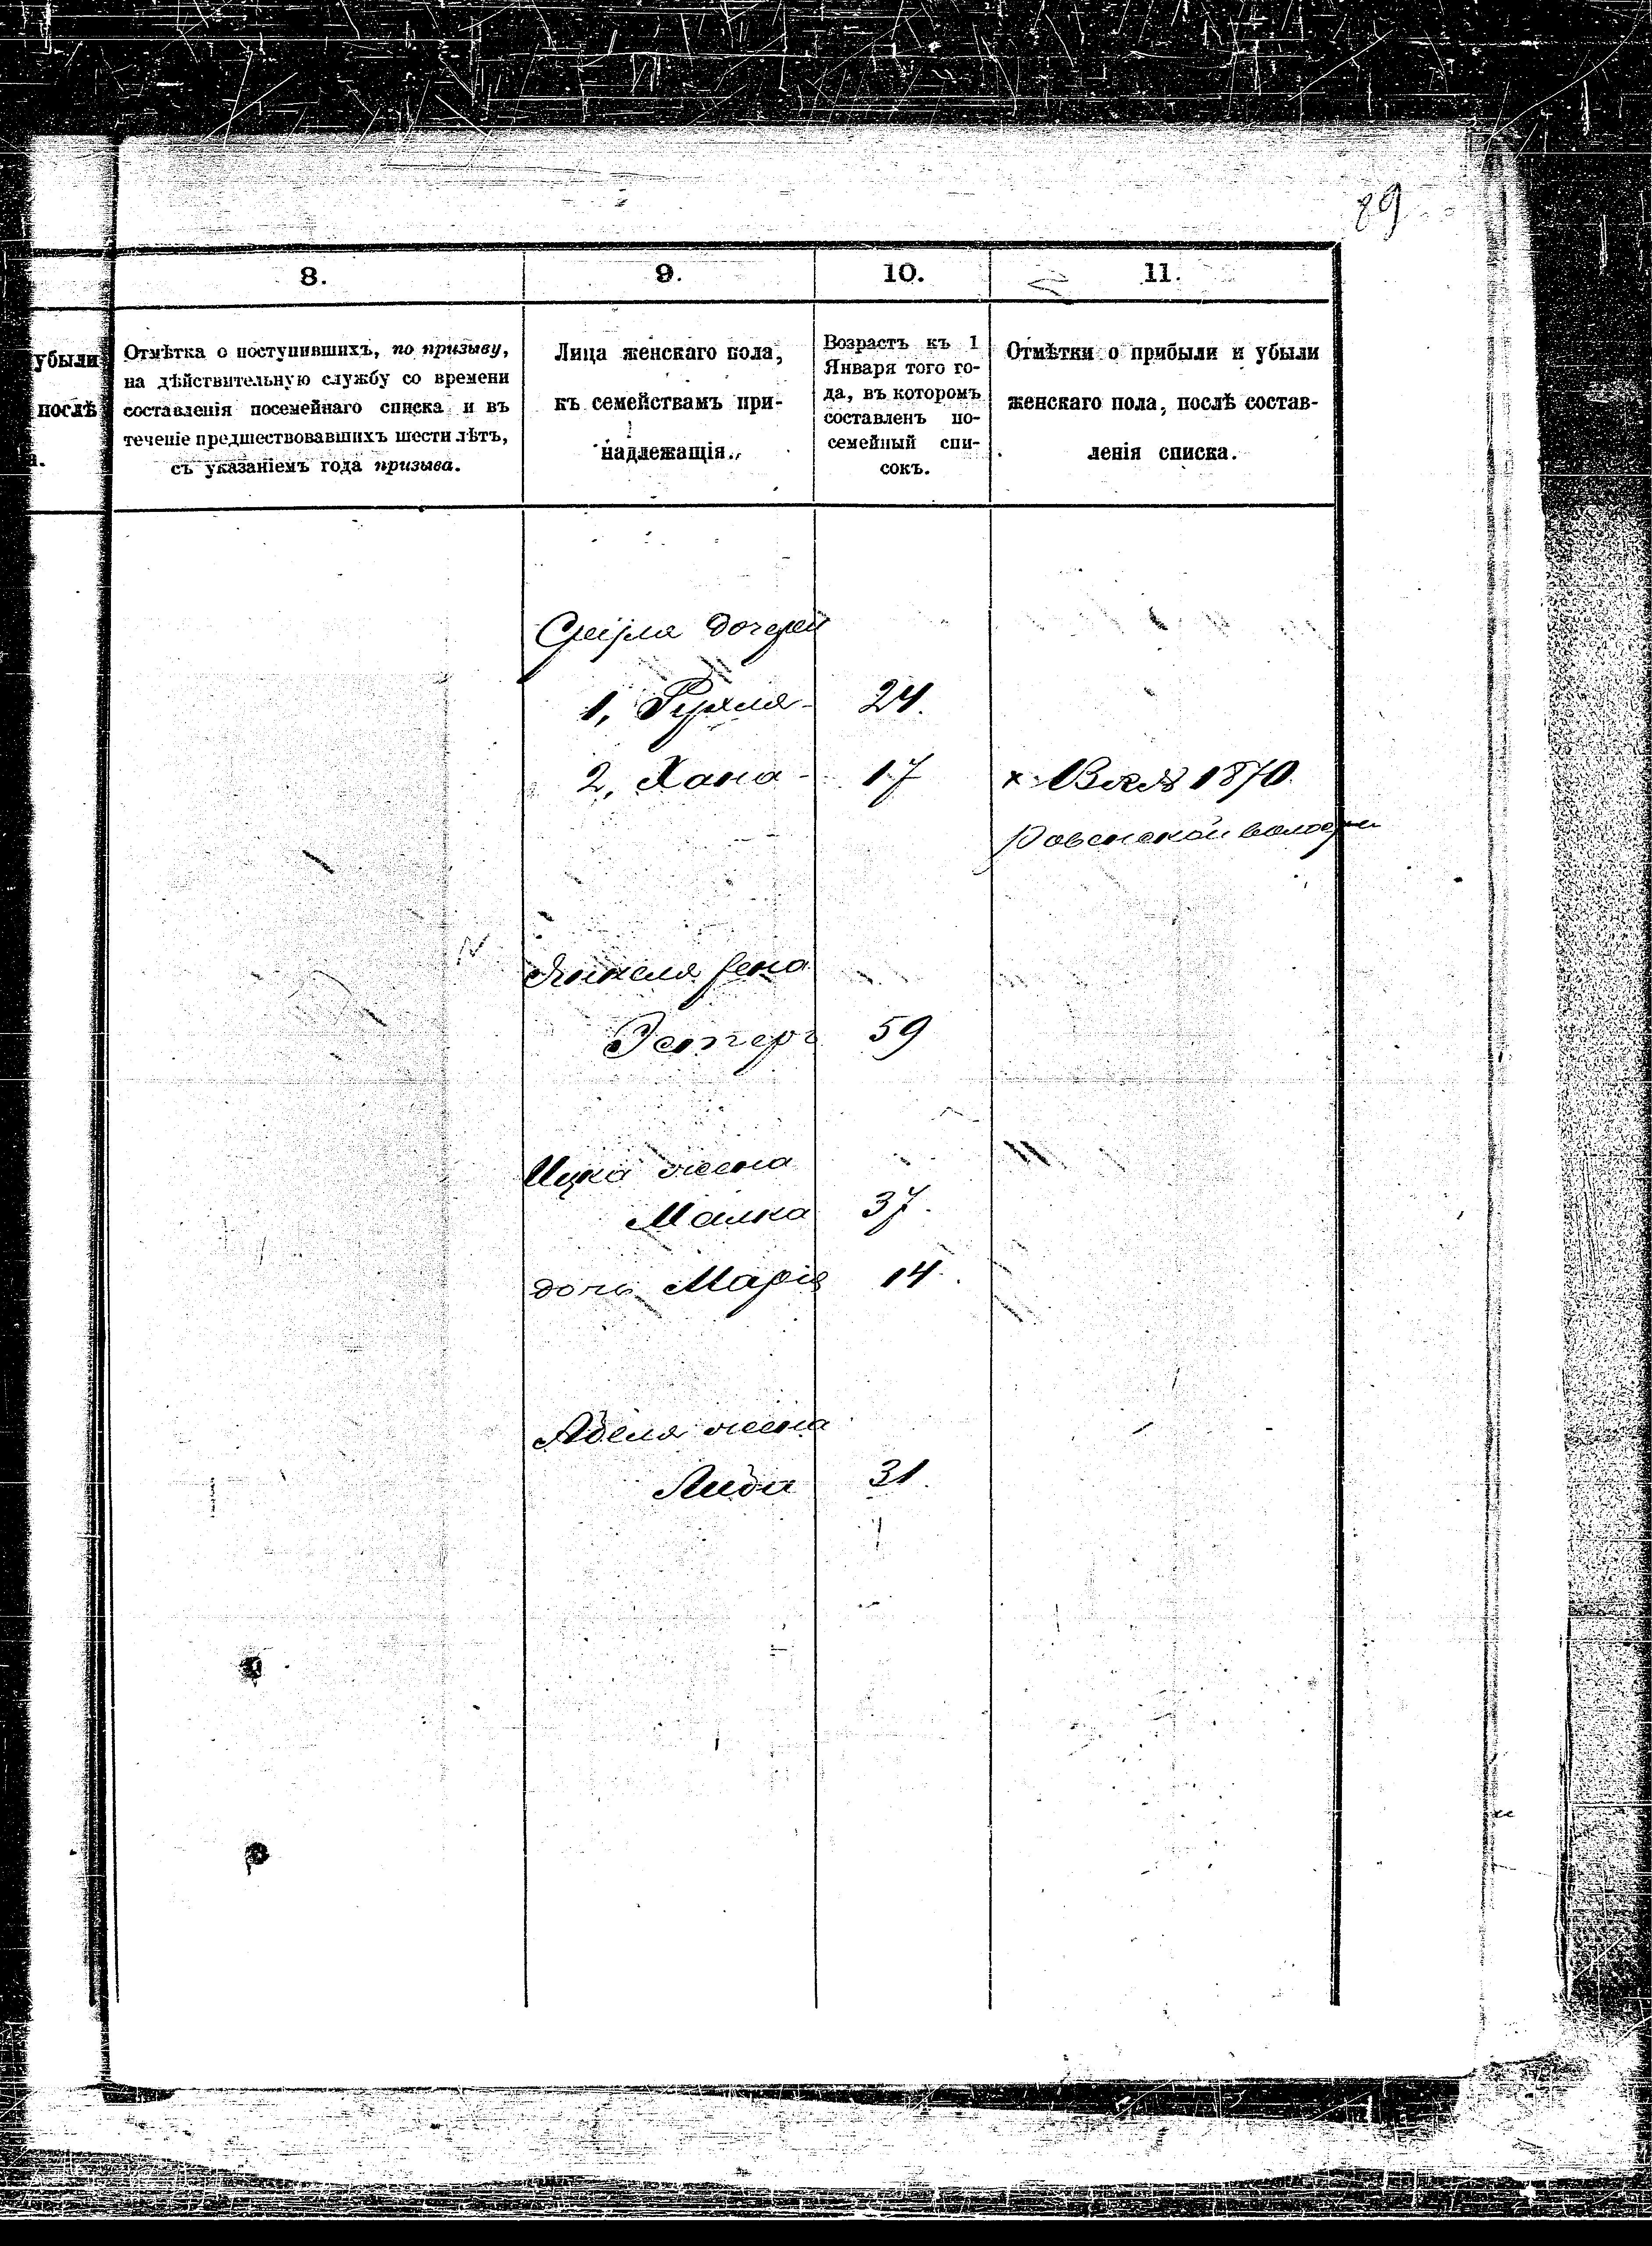 89
8.
9.
10.
11.
убыли
послѣ
Отмѣтка о поступившихъ, по призыву,
на дѣйствительную службу со времени
составленія посемейнаго списка и въ
теченіе предшествовавшихъ шести лѣтъ,
съ указаніемъ года призыва.
Лица женскаго пола,
къ семействамъ при-
надлежащія.
Возрастъ къ 1
Января того го-
да, въ которомъ
составленъ по-
семейный спи-
сокъ.
Отмѣтки о прибыли и убыли
женскаго пола, послѣ состав-
ленія списка.
дочери
1, Рухля 24.
2, Хана 17 х 1870
волости
Янкеля жена
Эстеръ 59
Ицка жена
Малка 37.
дочь Марія 14.
Абеля жена
Либа 31.